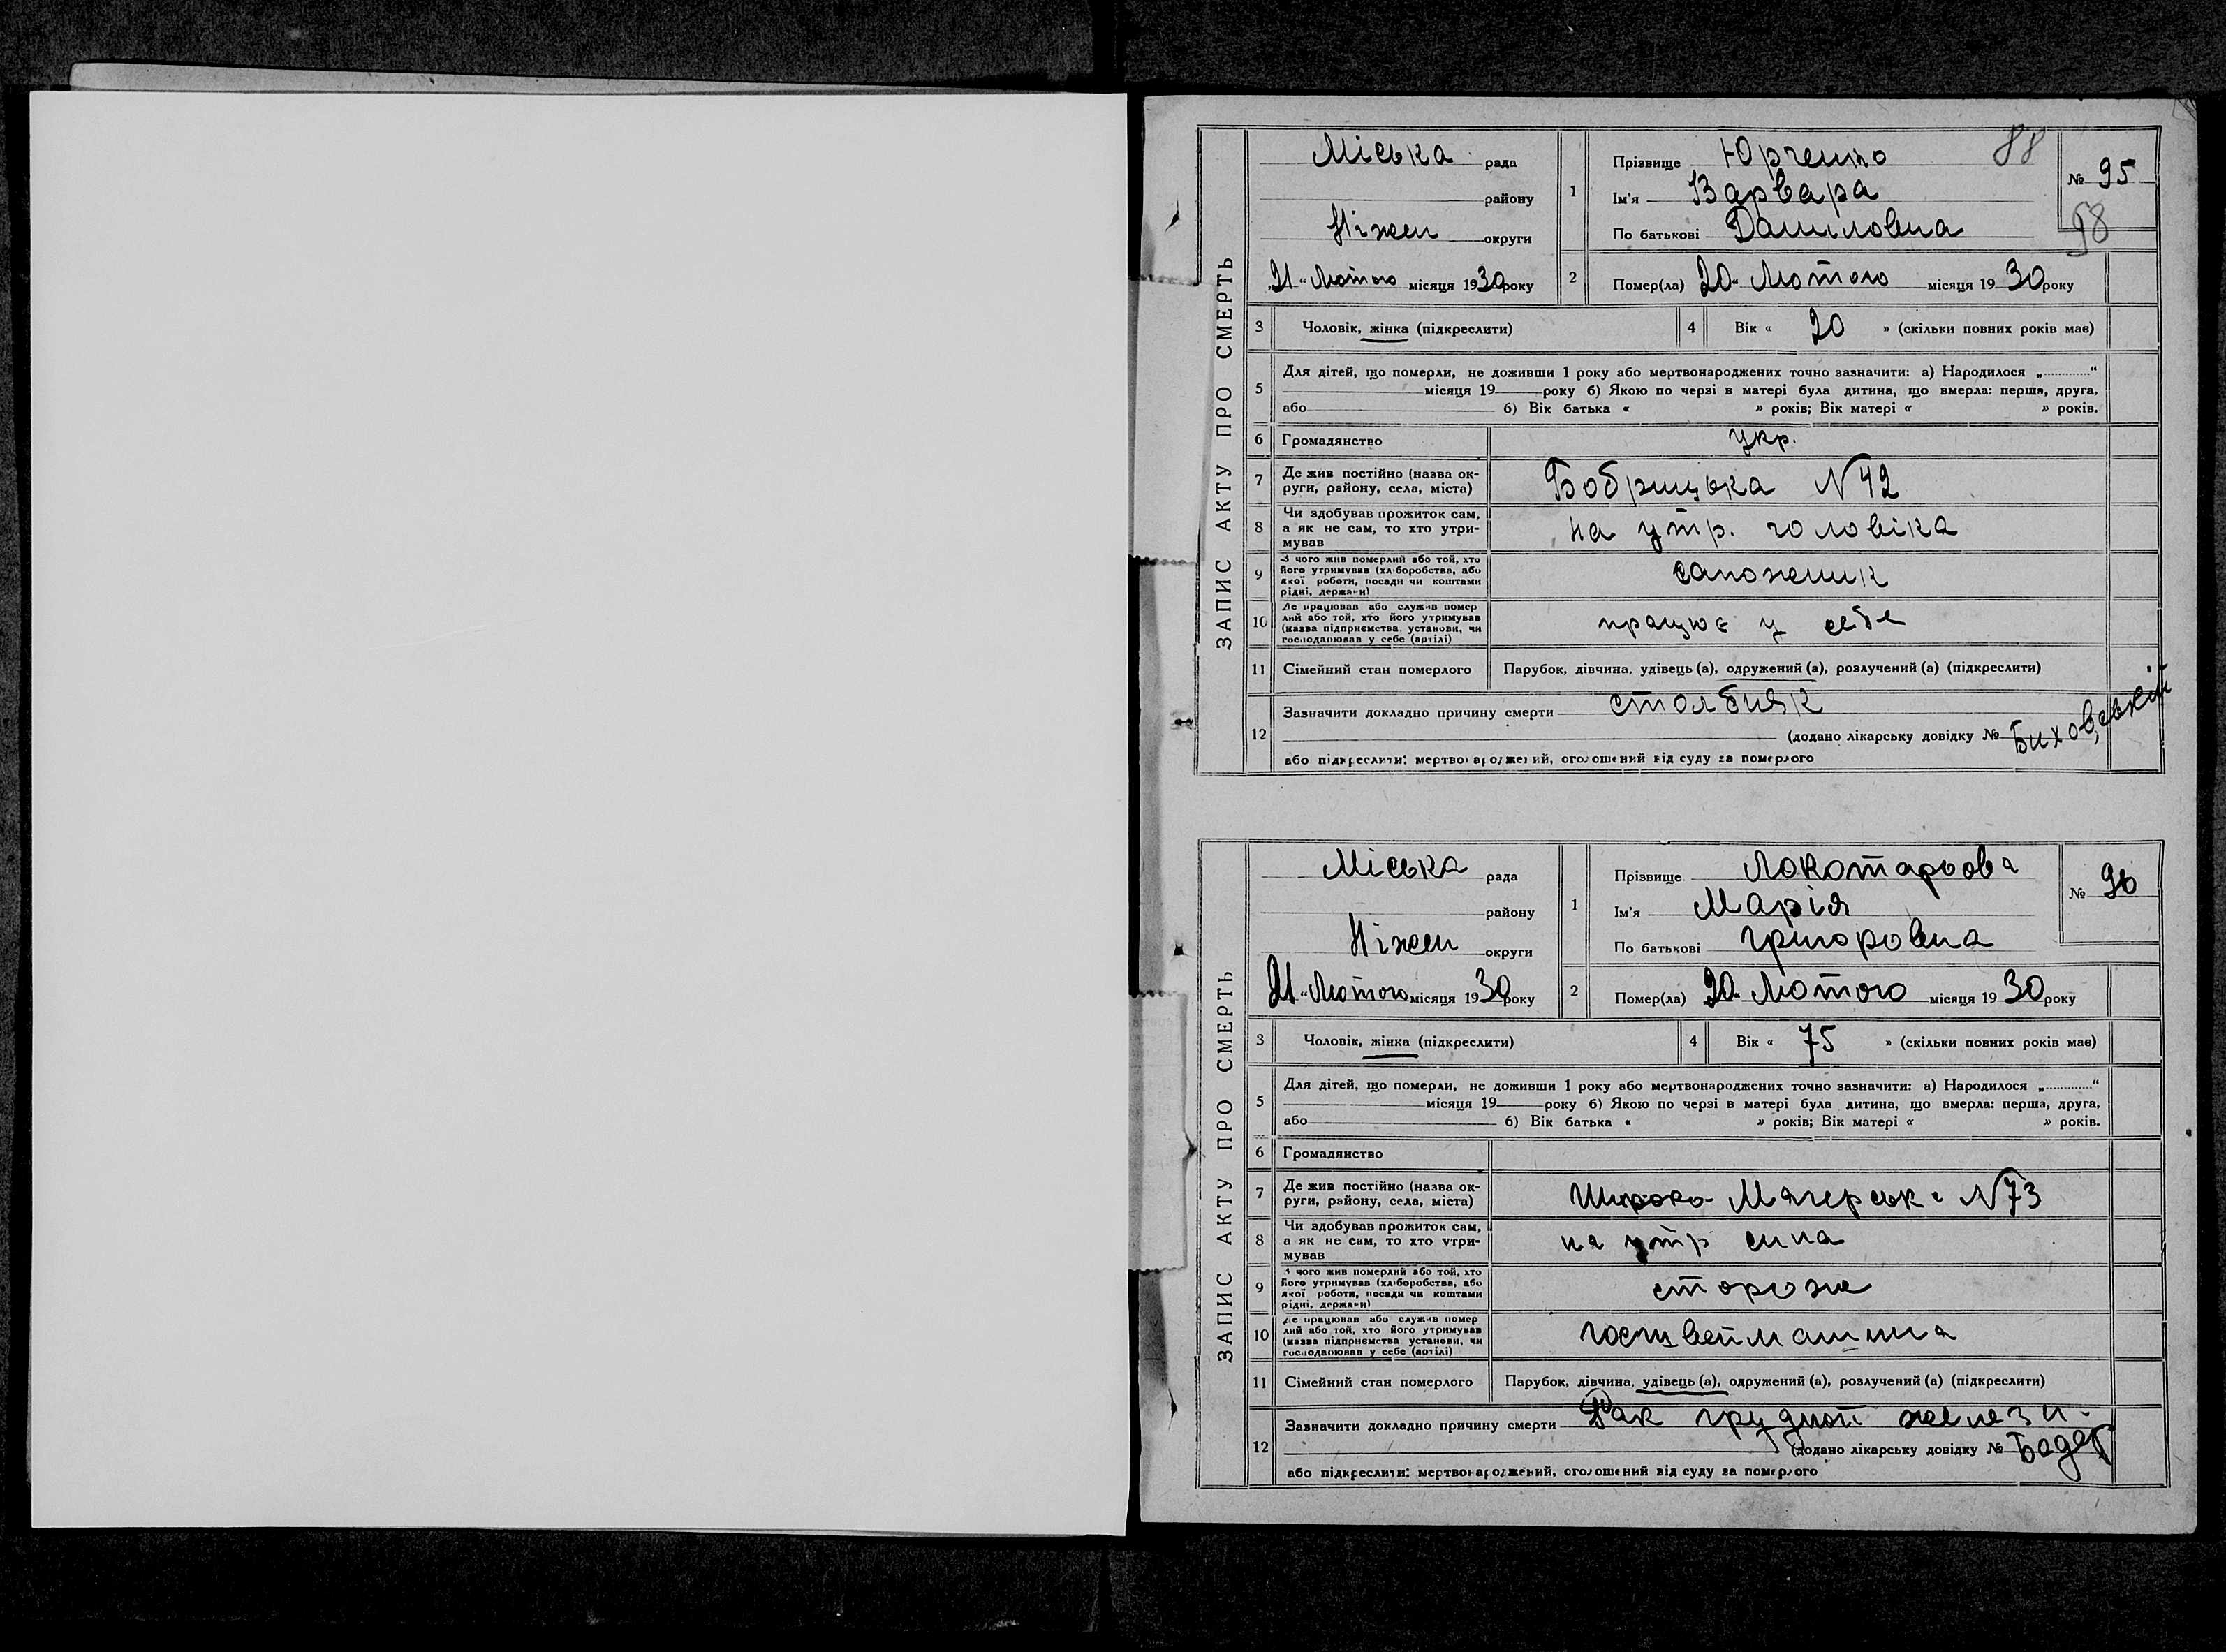 ЗАПИС АКТУ ПРО СМЕРТЬ
88
Міська рада
району
Ніжен округи
„21“ Лютого місяця 1930 року
1 Прізвище Юрченко
Ім'я Варвара
По батькові Даниловна
№ 95
98
2 Помер(ла) 20“ Лютого місяця 1930 року
3 Чоловік, жінка (підкреслити)
4 Вік « 20 » (скільки повних років має)
5 Для дітей, що померли, не доживши 1 року або мертвонароджених точно зазначити: а) Народилося „............“
місяця 19 року б) Якою по черзі в матері була дитина, що вмерла: перша, друга,
або б) Вік батька « » років; Вік матері « » років.
6 Громадянство укр.
7 Де жив постійно (назва ок-
руги, району, села, міста) Бобрицька N 42
8 Чи здобував прожиток сам,
а як не сам, то хто утри-
мував на утр. чоловіка
9 З чого жив померлий або той, хто
його утримував (хліборобства, або
якої роботи, посади чи коштами
рідні, держави) сапожник
10 Де працював або служив помер
лий або той, хто його утримував
(назва підприємства, установи, чи
господарював у себе (артілі) працює у себе
11 Сімейний стан померлого Парубок, дівчина, удівець (а), одружений (а), розлучений (а) (підкреслити)
12 Зазначити докладно причину смерти столбняк
(додано лікарську довідку № Биховський
або підкреслити: мертвонароджений, оголошений від суду за померлого
ЗАПИС АКТУ ПРО СМЕРТЬ
Міська рада
району
Ніжен округи
21“ Лютого місяця 1930 року
1 Прізвище Локотарьова
Ім'я Марія
По батькові Григоровна
№ 96
2 Помер(ла) 20“ Лютого місяця 1930 року
3 Чоловік, жінка (підкреслити)
4 Вік « 75 » (скільки повних років має)
5 Для дітей, що померли, не доживши 1 року або мертвонароджених точно зазначити: а) Народилося „............“
місяця 19 року б) Якою по черзі в матері була дитина, що вмерла: перша, друга,
або б) Вік батька « » років; Вік матері « » років.
6 Громадянство
7 Де жив постійно (назва ок-
руги, району, села, міста) Широко-Мягерська N 73
8 Чи здобував прожиток сам,
а як не сам, то хто утри-
мував на утр сина
9 З чого жив померлий або той, хто
його утримував (хліборобства, або
якої роботи, посади чи коштами
рідні, держави) сторож
10 Де працював або служив помер
лий або той, хто його утримував
(назва підприємства, установи, чи
господарював у себе (артілі)
11 Сімейний стан померлого Парубок, дівчина, удівець (а), одружений (а), розлучений (а) (підкреслити)
12 Зазначити докладно причину смерти Рак грудной желези.
(додано лікарську довідку №
або підкреслити: мертвонароджений, оголошений від суду за померлого